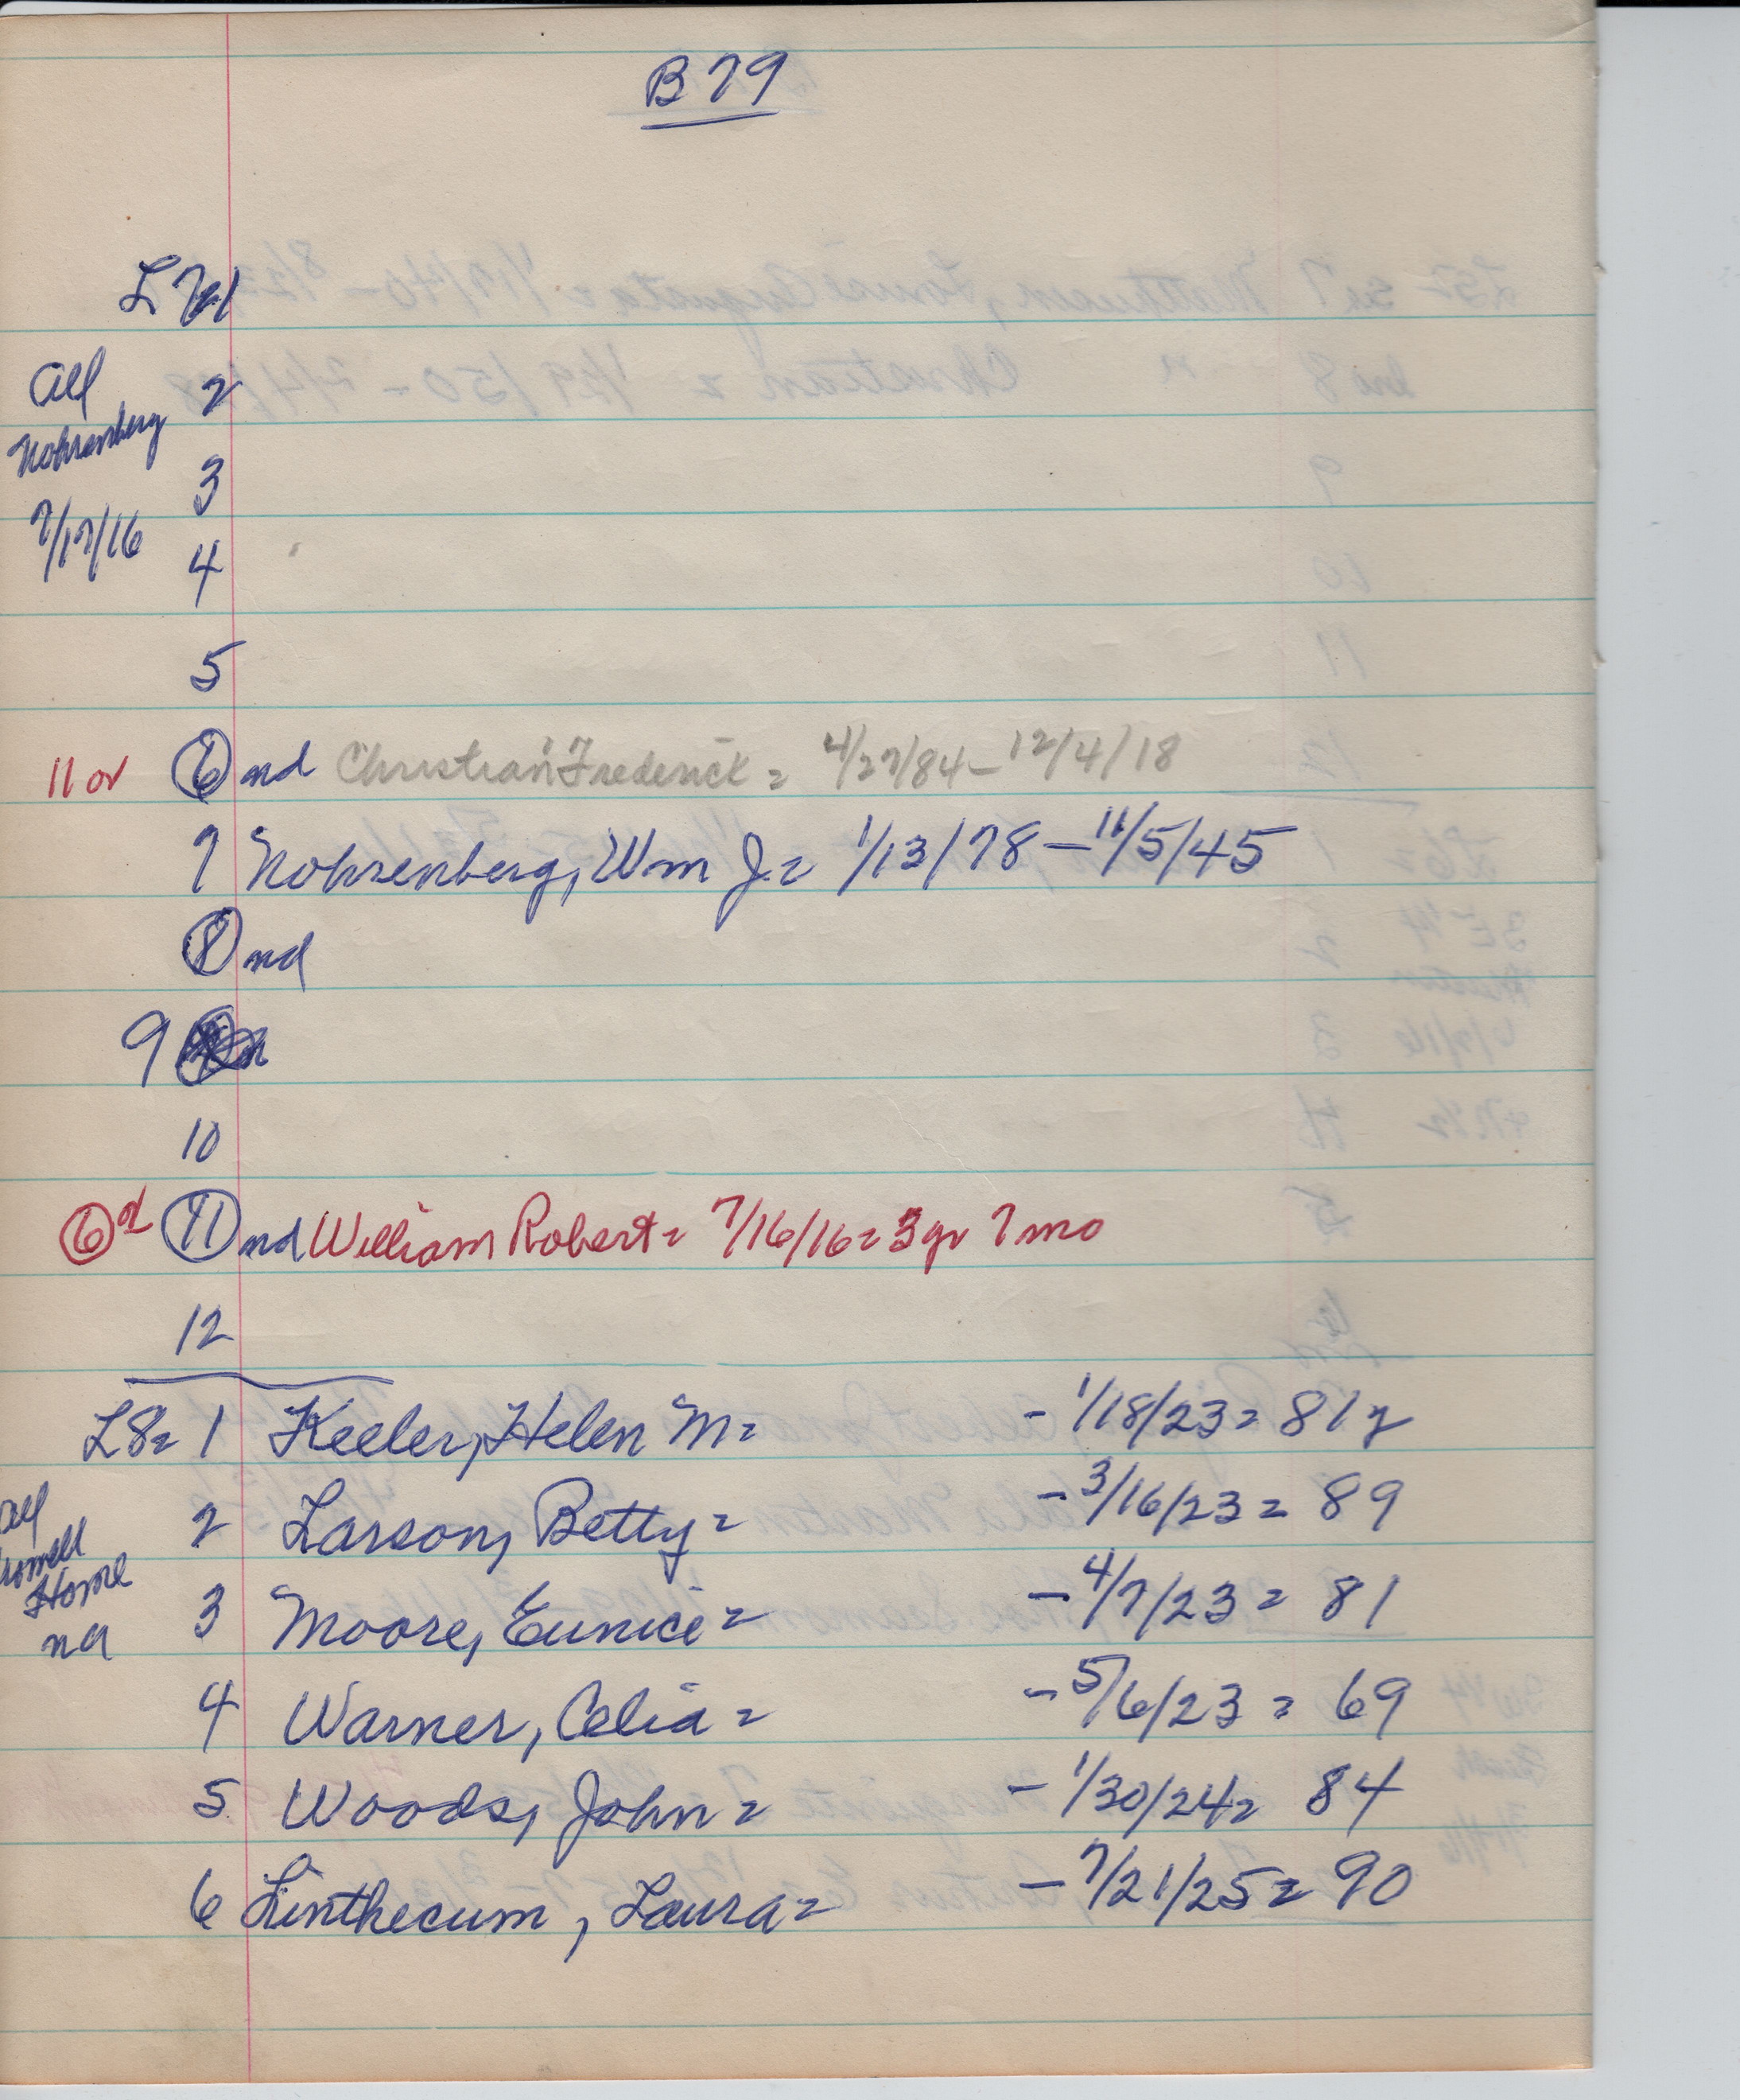 B 79
L 7 1
All 2
Nohrenberg
3
7/17/16
4
5
11 or 6 nd Christian Frederick = 4/27/84 - 12/4/18
7 Nohrenberg, Wm J = 1/13/78 - 11/5/45
8 nd
9
10
6 or 11 nd William Robert = 7/16/16 = 3 yr 7 mo
12
L8 = 1 Keeler, Helen M = - 1/18/23 = 81 y
All
2 Larson, Betty = - 3/16/23 = 89
Home
3 Moore, Eunice = - 4/7/23 = 81
na
4 Warner, Celia = - 5/6/23 = 69
5 Woods, John = - 1/30/24 = 84
6 Linthecum, Laura = - 7/21/25 = 90